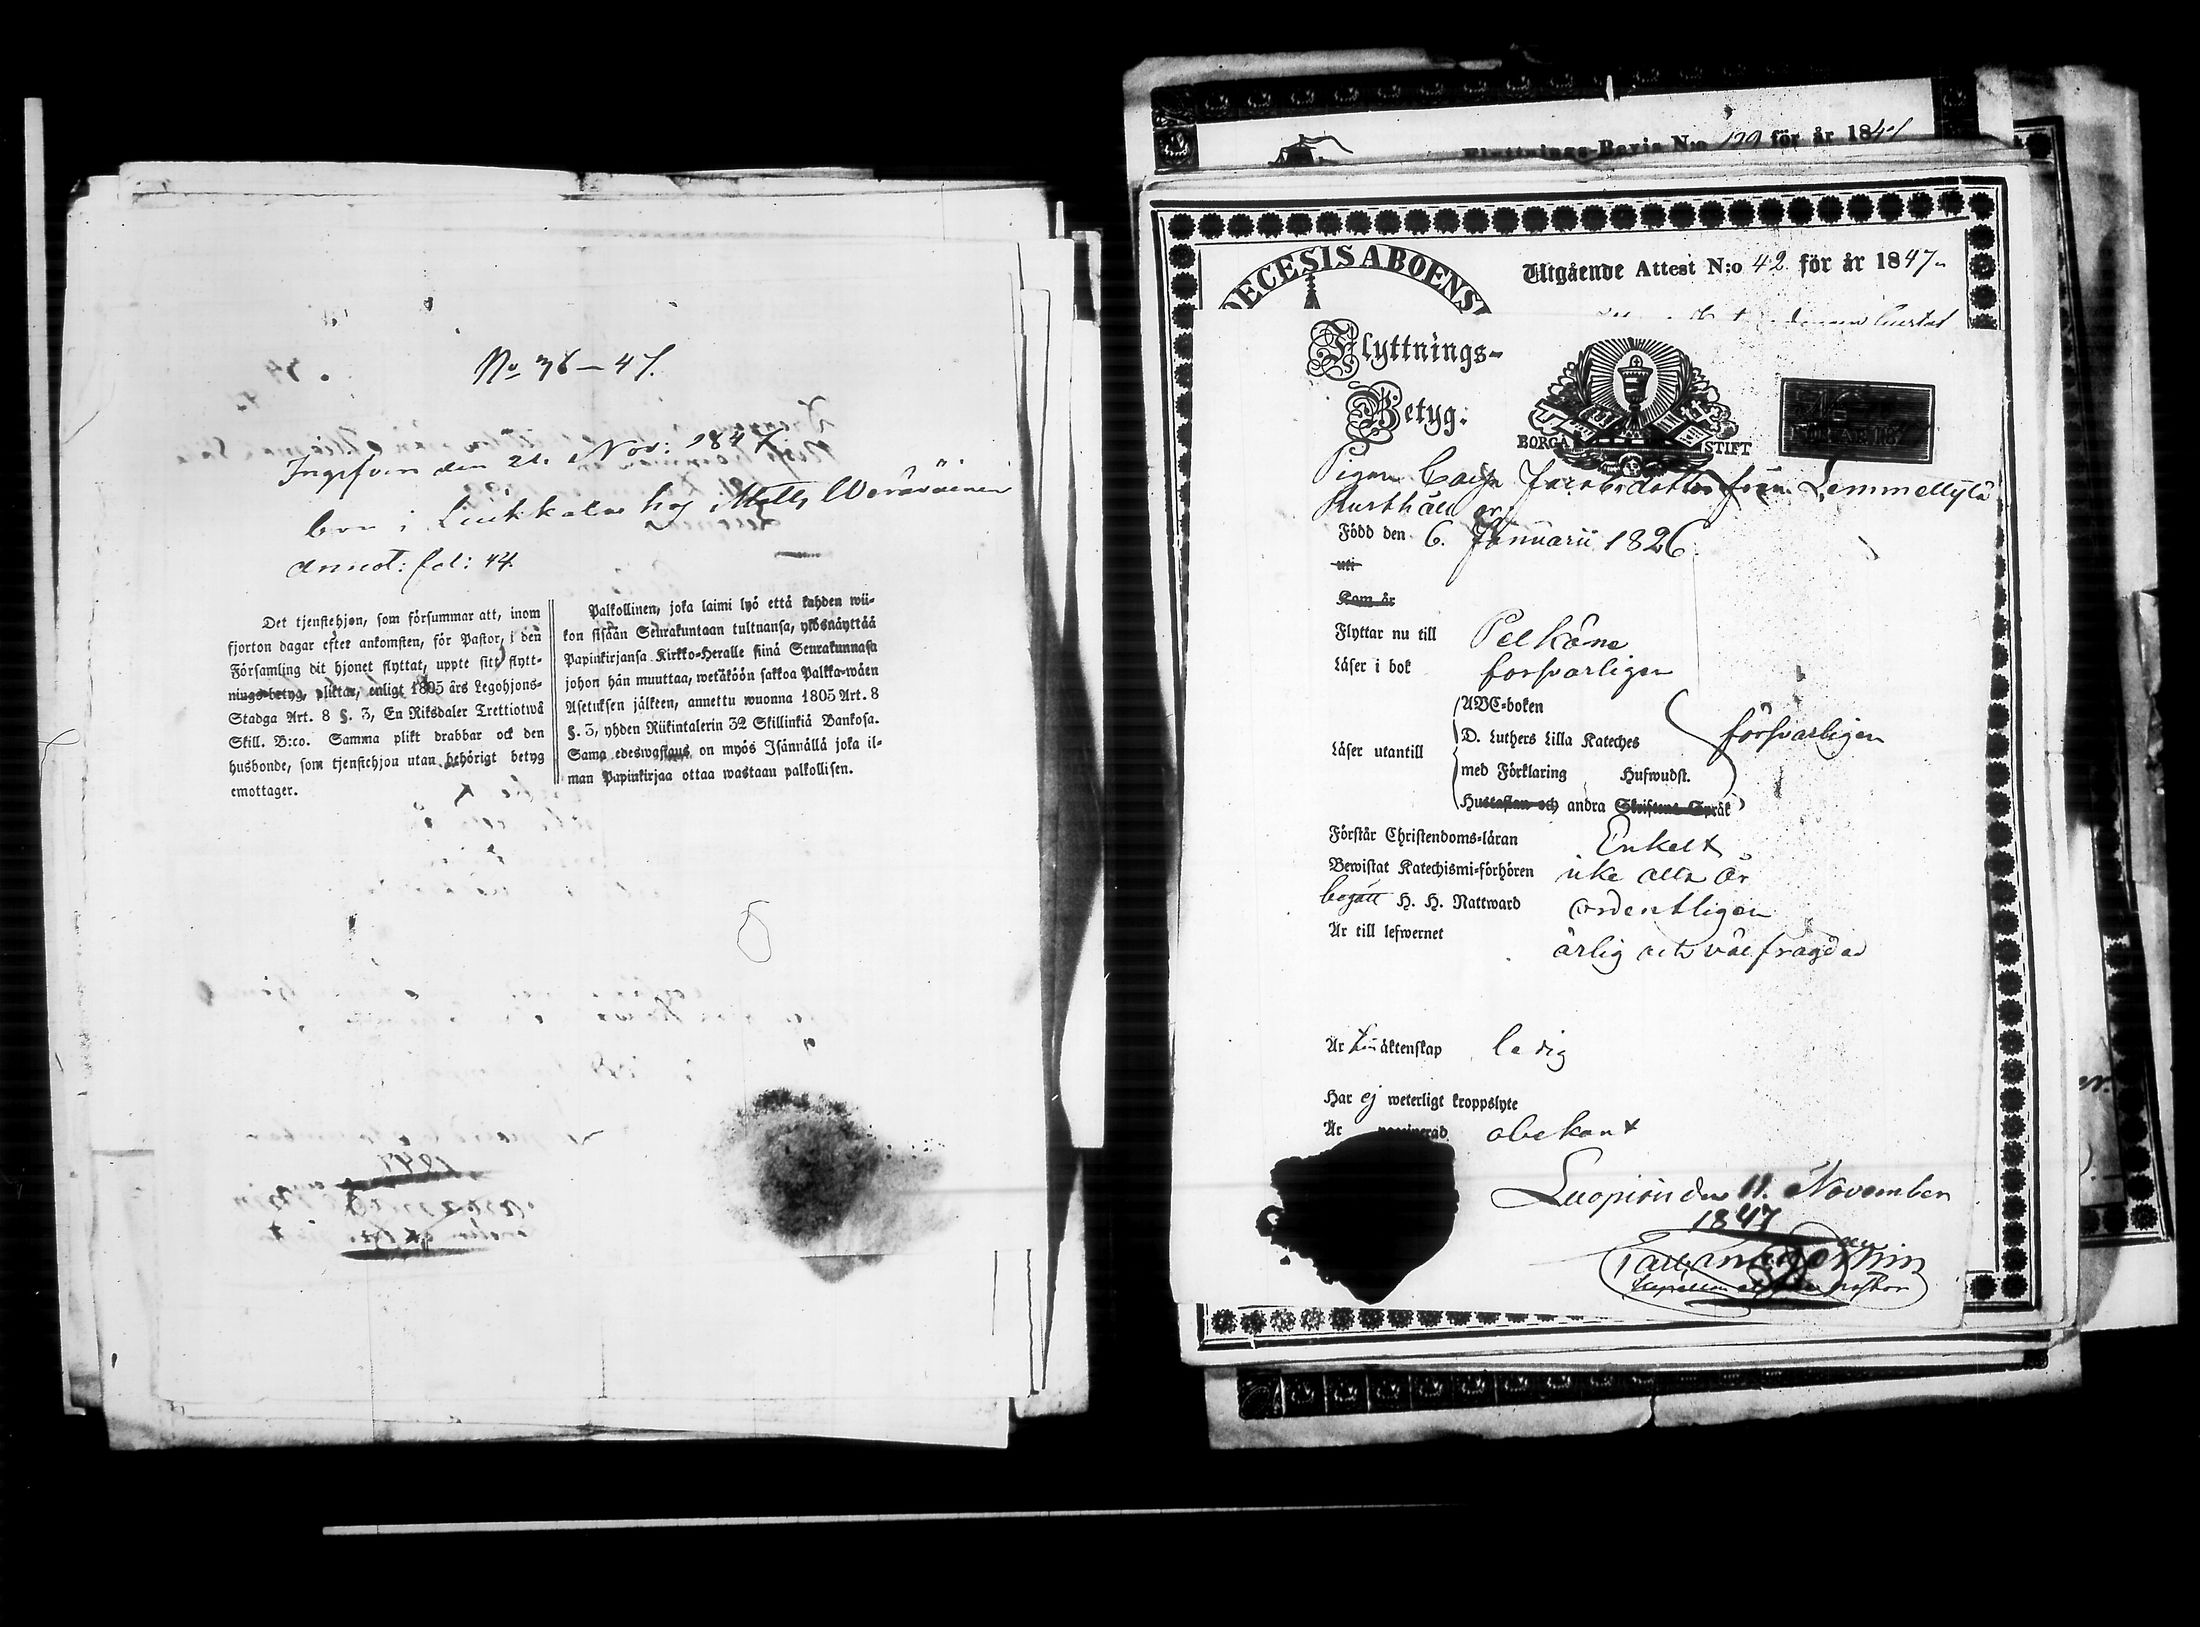 No 36-47.
Ingifven den 21 Nov: 1847
bor i Luikkala hos Matts
annot: fol: 44.
Det tjenstehjon, som försummar att, inom
fjorton dagar efter ankomsten, för Pastor, i den
Församling dit hjonet flyttat, uppte sitt flytt-
nings-betyg, pliktar, enligt 1805 års Legohjons-
Stadga Art. 8 §. 3, En Riksdaler Trettiotwå
Skill. B:co. Samma plikt drabbar ock den
husbonde, som tjenstehjon utan behörigt betyg
emottager.
Palkollinen, joka laimi lyö että kahden wii-
kon sisään Seurakuntaan tultuansa, ylösnäyttää
Papinkirjansa Kirkko-Heralle siinä Seurakunnasa
johon hän muuttaa, wetäköön sakkoa Palkka-wäen
Asetuksen jälkeen, annettu wuonna 1805 Art. 8
§. 3, yhden Riikintalerin 32 Skillinkiä Bankosa.
Sama edeswastaus on myös Isännällä joka il-
man Papinkirjaa ottaa wastaan palkollisen.
Flyttnings-Bevis N:o 129 för år 1847
DECESIS ABOENS
Utgående Attest N:o 42 för år 1847
Flyttnings-
Betyg:
BORGÅ STIFT
Pigan Caisa Jacobsdotter från Lemmettylä
Rusthåll är
Född den 6. Januarii 1826
uti
Kom år
Flyttar nu till Pelkäne
Läser i bok försvarligen
Läser utantill
ABC-boken
D. Luthers Lilla Kateches
med Förklaring Hufwudst.
Hustaflan och andra Skriftens Språk
försvarligen
Förstår Christendoms-läran Enkelt
Bewistat Katechismi-förhören icke alla år
begått H. H. Nattward ordentligen
Är till lefwernet ärlig och välfrägdad
Är till äktenskap ledig
Har ej weterligt kroppslyte
Är obekant
Luopiois den 11. November
1847